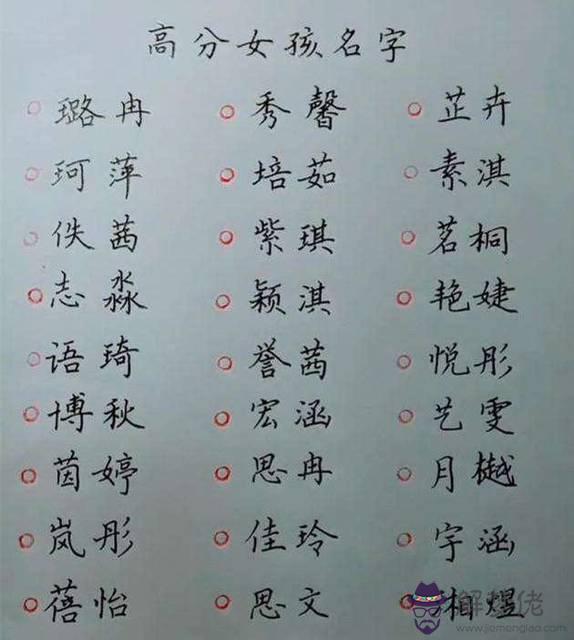 高分女孩名字
璐冉 秀馨 芷卉
珂萍 培茹 素淇
佚茜 紫琪 茗桐
志淼 颖淇 艳婕
语琦 誉茜 悦彤
博秋 宏涵 艺雯
茵婷 思冉 月樾
岚彤 佳玲 宇涵
蓓怡 思文 相煜
解梦佬
www.jiemenglao.com